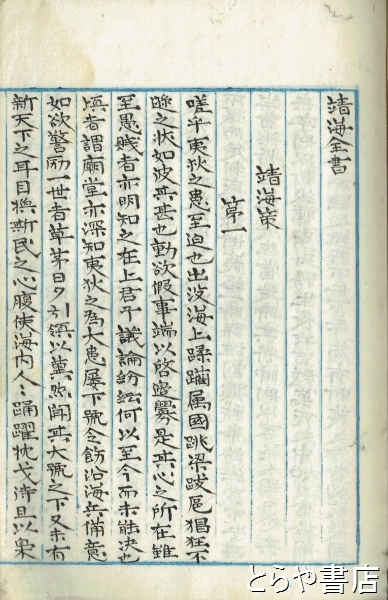 靖海全書
靖海策
第一
嗟乎夷狄之患至迫也出没海上蹂躪属國跳梁跋扈猖狂不
遜之状如彼其甚也動欲假事端以啓邊釁是其心之所在雖
至愚賎者亦明知之在上君子議論紛紜何以至今而未能决也
者謂廟堂亦深知夷狄之為大患屡下號令飭沿海兵備意
如欲警励一世者草莽日夕引領以冀然聞其大號之下又未有
新天下之耳目換斯民之心腹使海内人〻踊躍枕戈待旦以梟
とらや書店